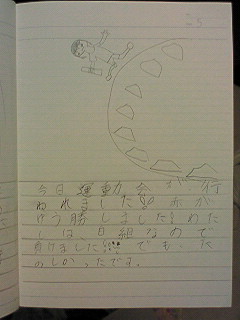 今日運動会が行
われました。赤が
ゆう勝しました。わた
しは白組なので
負けました。でも、た
のしかったです。